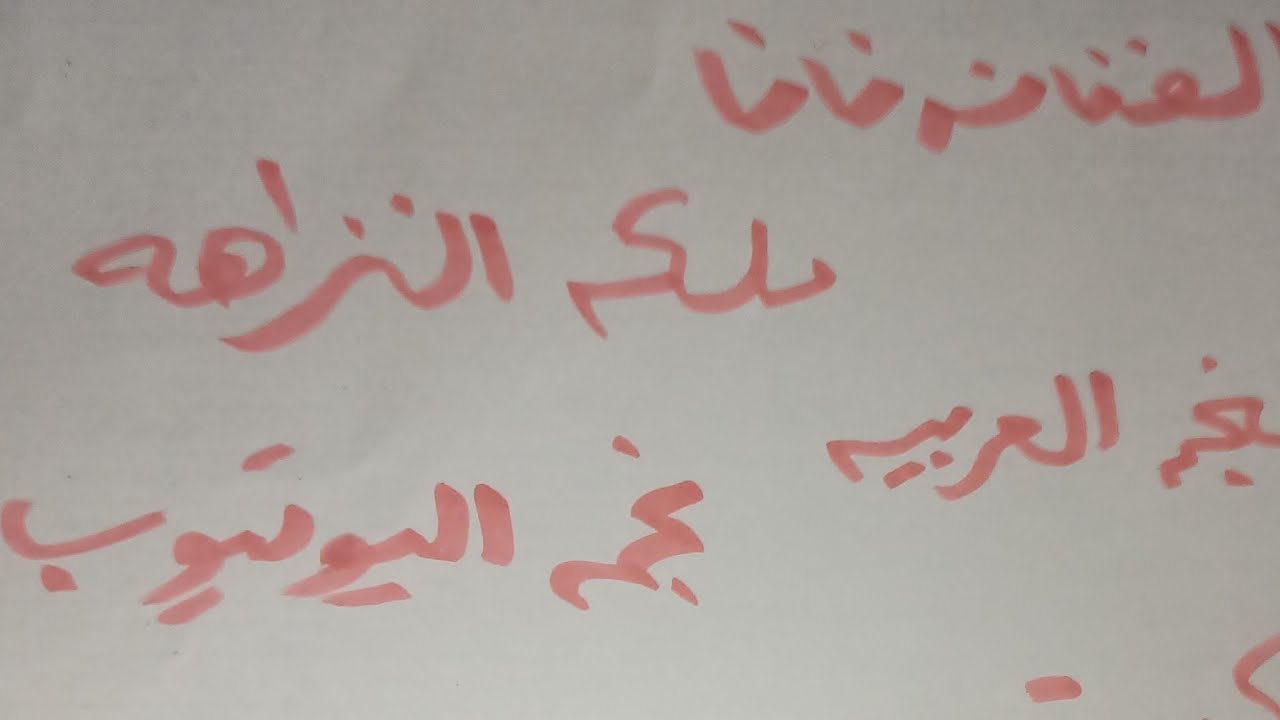 الفنان فانفا
ملك النزاهه
نجم العربيه
نجم اليوتيوب